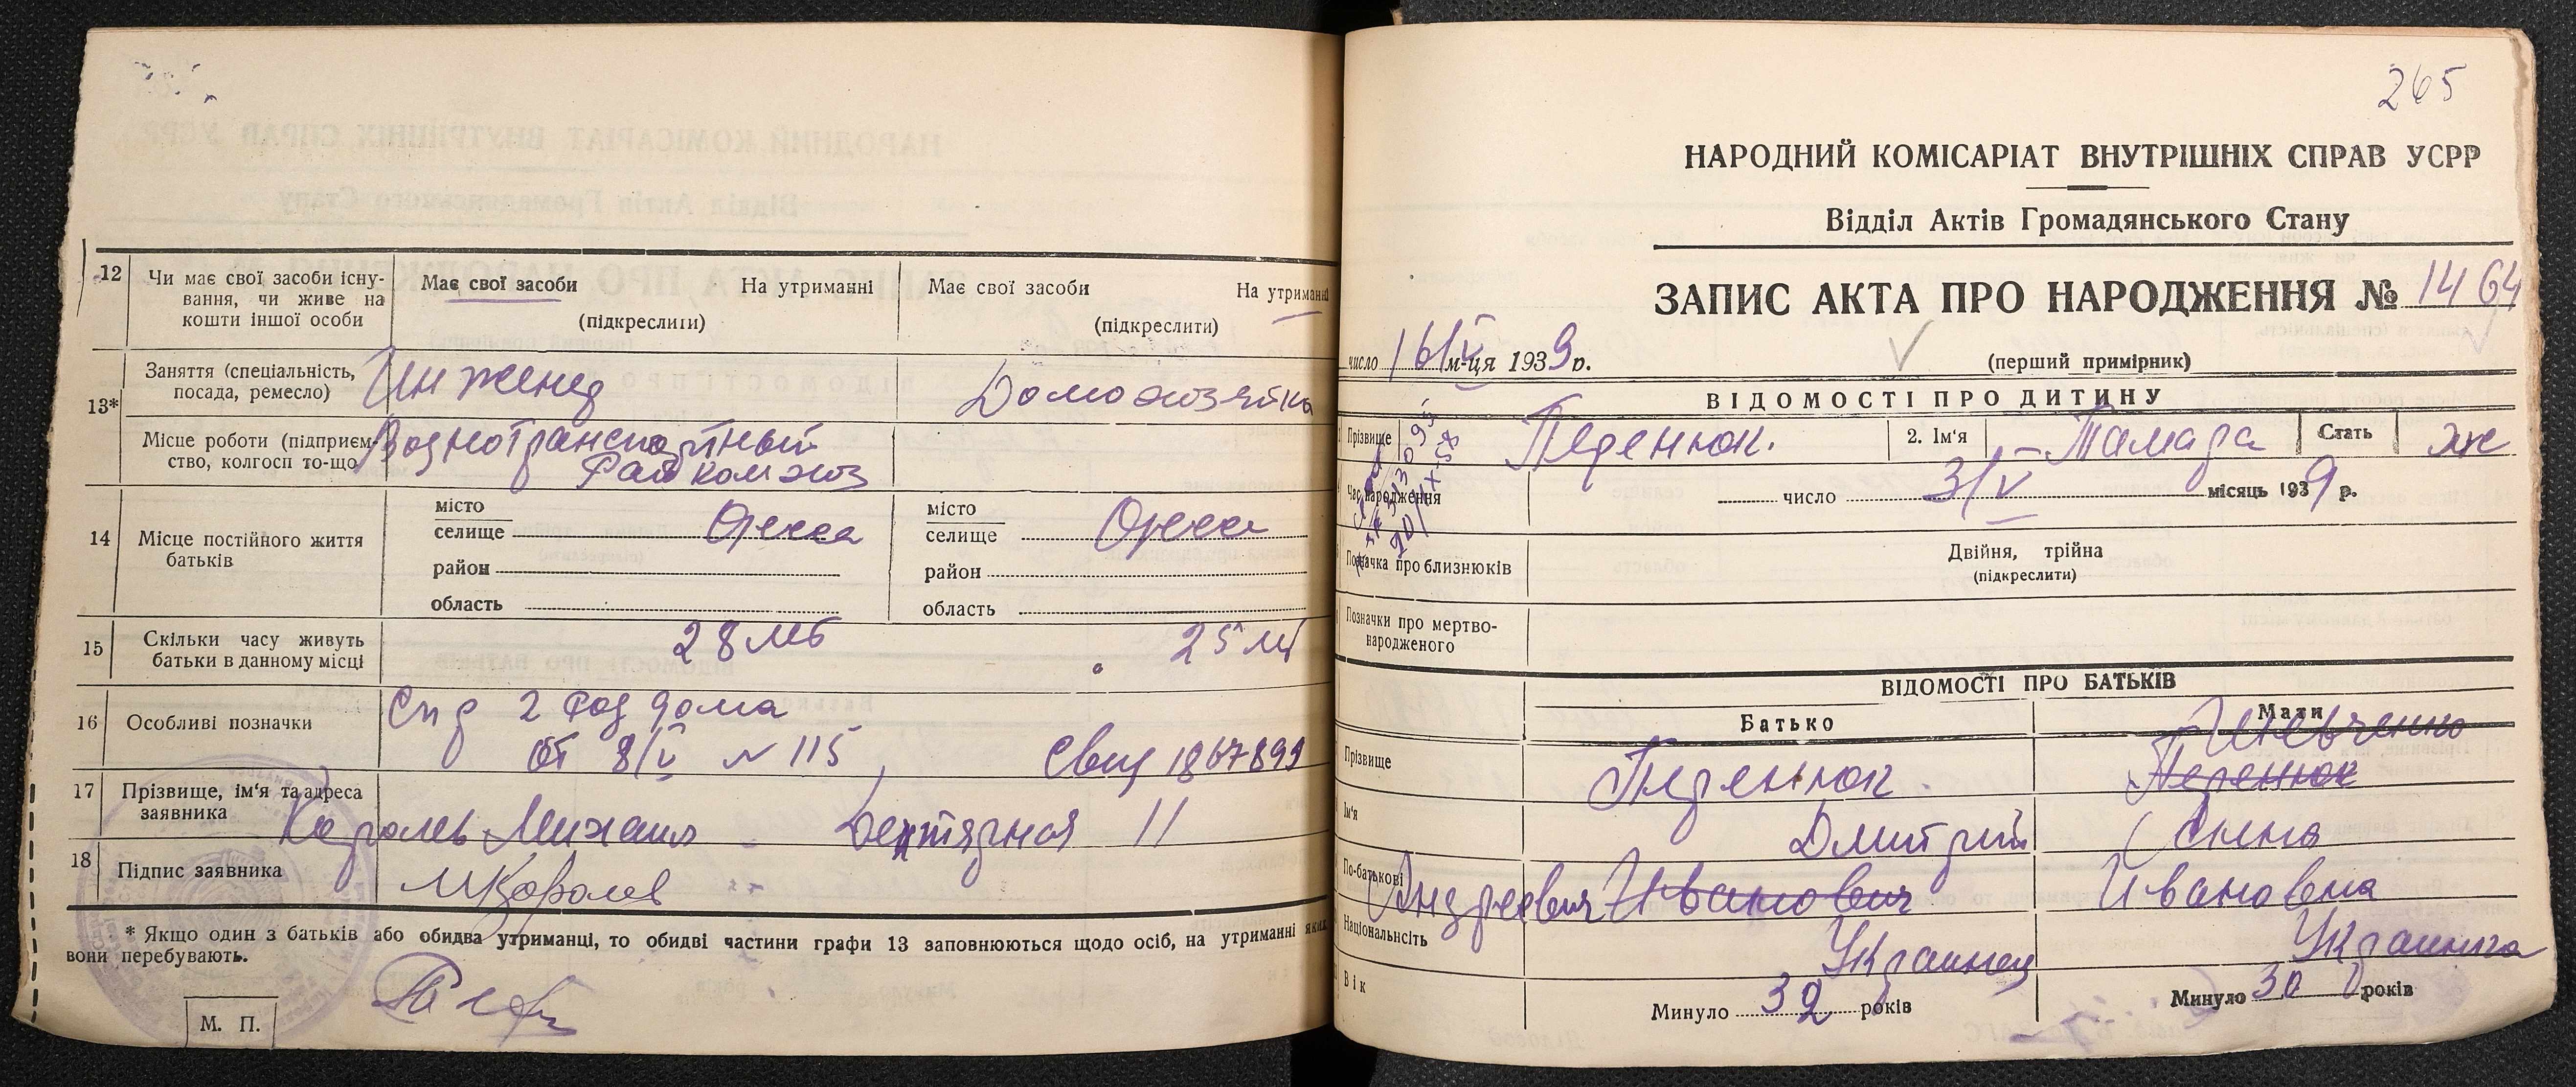 12 Чи має свої засоби існування, чи живе на кошти іншої особи
Має свої засоби На утриманні
(підкреслити)
Має свої засоби На утриманні
(підкреслити)
13*
Заняття (спеціальність, посада, ремесло)
Инженер
Домохозяйка
Місце роботи (підприємство, колгосп то-що
Воднотранспортный
Рабкомхоз
14 Місце постійного життя батьків
місто
селище Одесса
район
область
місто
селище Одесса
район
область
15 Скільки часу живуть батьки в данному місці
28 лет
25 лет
16 Особливі позначки
Спр 2 Род дома
от 8/V N 115, Свид 1867899
17 Прізвище, ім'я та адреса заявника
Королев Михаил Дегтярная 11
18 Підпис заявника
МКоролев
* Якщо один з батьків або обидва утриманці, то обидві частини графи 13 заповнюються щодо осіб, на утриманні яких
вони перебувають.
М. П.
265
НАРОДНИЙ КОМІСАРІАТ ВНУТРІШНІХ СПРАВ УСРР
Відділ Актів Громадянського Стану
ЗАПИС АКТА ПРО НАРОДЖЕННЯ № 1464
число 16/V м-ця 1939 р.
(перший примірник)
ВІДОМОСТІ ПРО ДИТИНУ
Прізвище Перенюк. 2. Ім'я Тамара Стать ж
Час народження
число 3/V місяць 1939 р.
Позначка про близнюків
Двійня, трійна
(підкреслити)
Позначки про мертвонародженого
ВІДОМОСТІ ПРО БАТЬКІВ
Батько Мати
Шевченко
Прізвище Перенюк Перенюк
Ім'я Дмитрий Анна
По-батькові Андреевич Иванович Ивановна
Національність Украинец Украинка
Вік Минуло 32 років Минуло 30 років